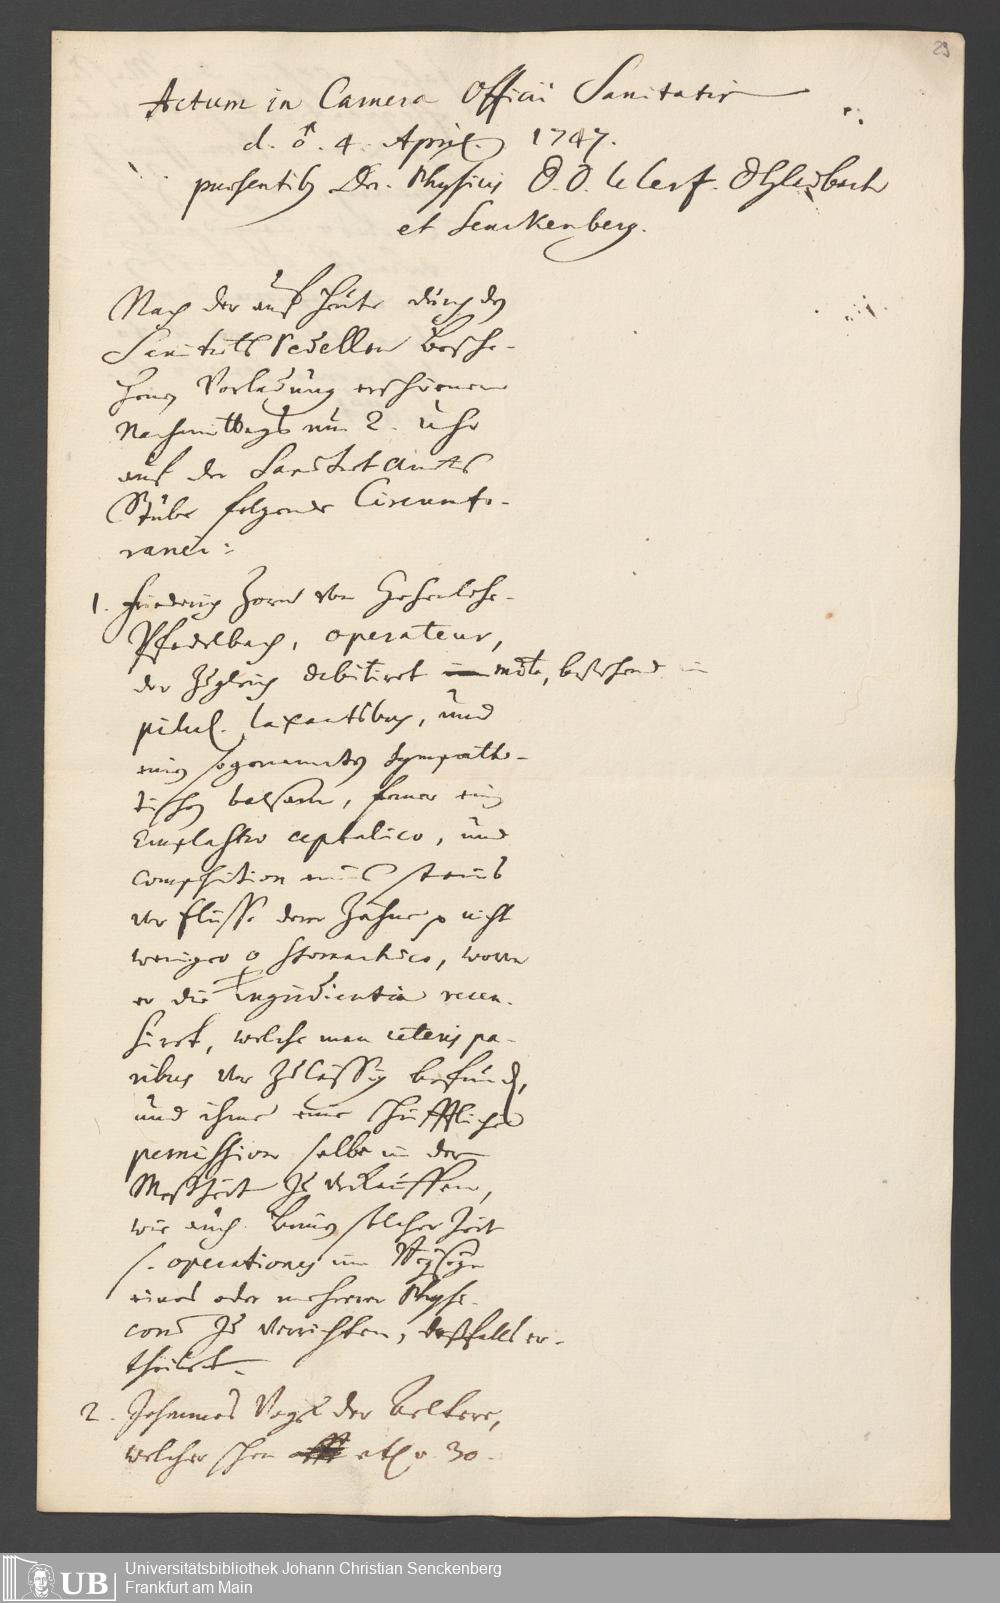 29
Actum in Camera Officii Sanitatis
d. 4. April. 1747.
praesentib Dn. Physicis D. D. le Cerf. Ohlenbach
et Senckenberg.
Nach der auf heute durch den
Sanitäts Pedellen besche-
henen Vorladung erschienen
Nachmittags um 2. Uhr
auf der Sanitätamts
Stube folgende Circumfo-
ranei:
1. Friederich Zorn von Hohenlohe-
Pfedelbach, operateur,
der zugleich debitiret mdta, bestehend in
pilul. laxantibus, und
einen sogenannten sympathe-
tischen balsam, ferner ein
Emplastro cephalico, und
composition eines
vor flüsse derer Zähne nicht
weniger stomachico, wovon
er die Ingredientia recen-
siret, welche man ceteris pa-
ribus vor zulässig befunden,
und ihme eine schrifftliche
permission selbe in der
Meßzeit zu verkauffen,
wie auch binnen solcher Zeit
s. operationes im Beyseyn
eines oder mehrerer Physi-
corum zu verrichten, deßfalls er-
theilet.
2. Johannes Vogt der Aeltere,
welcher schon etl. 30.
Universitätsbibliothek Johann Christian Senckenberg
Frankfurt am Main
UB